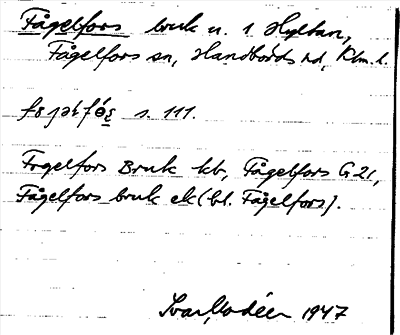 Fågelfors bruk u. 1 Hyltan,
Fågelfors sn, Handbörds hd, Klm. l.
s. 111.
Fogelfors Bruk kb, Fågelfors G 21,
Fågelfors bruk ek (bl. Fågelfors).
Ivar Modéer 1947